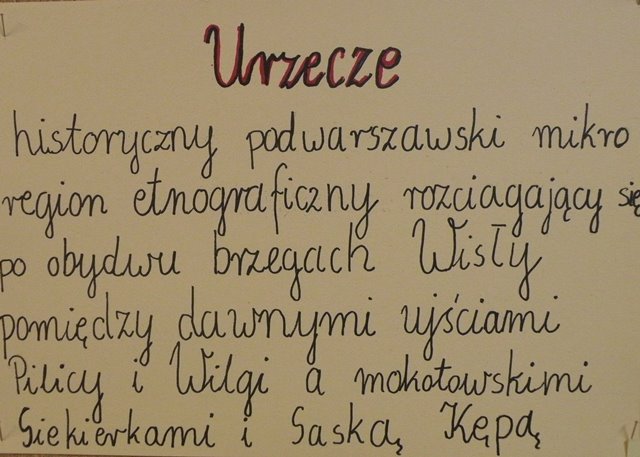 Urzecze
historyczny podwarszawski mikro
region etnograficzny rozciagający się
po obydwu brzegach Wisły
pomiędzy dawnymi ujściami
Pilicy i Wilgi a mokotowskimi
Siekierkami i Saską Kępą